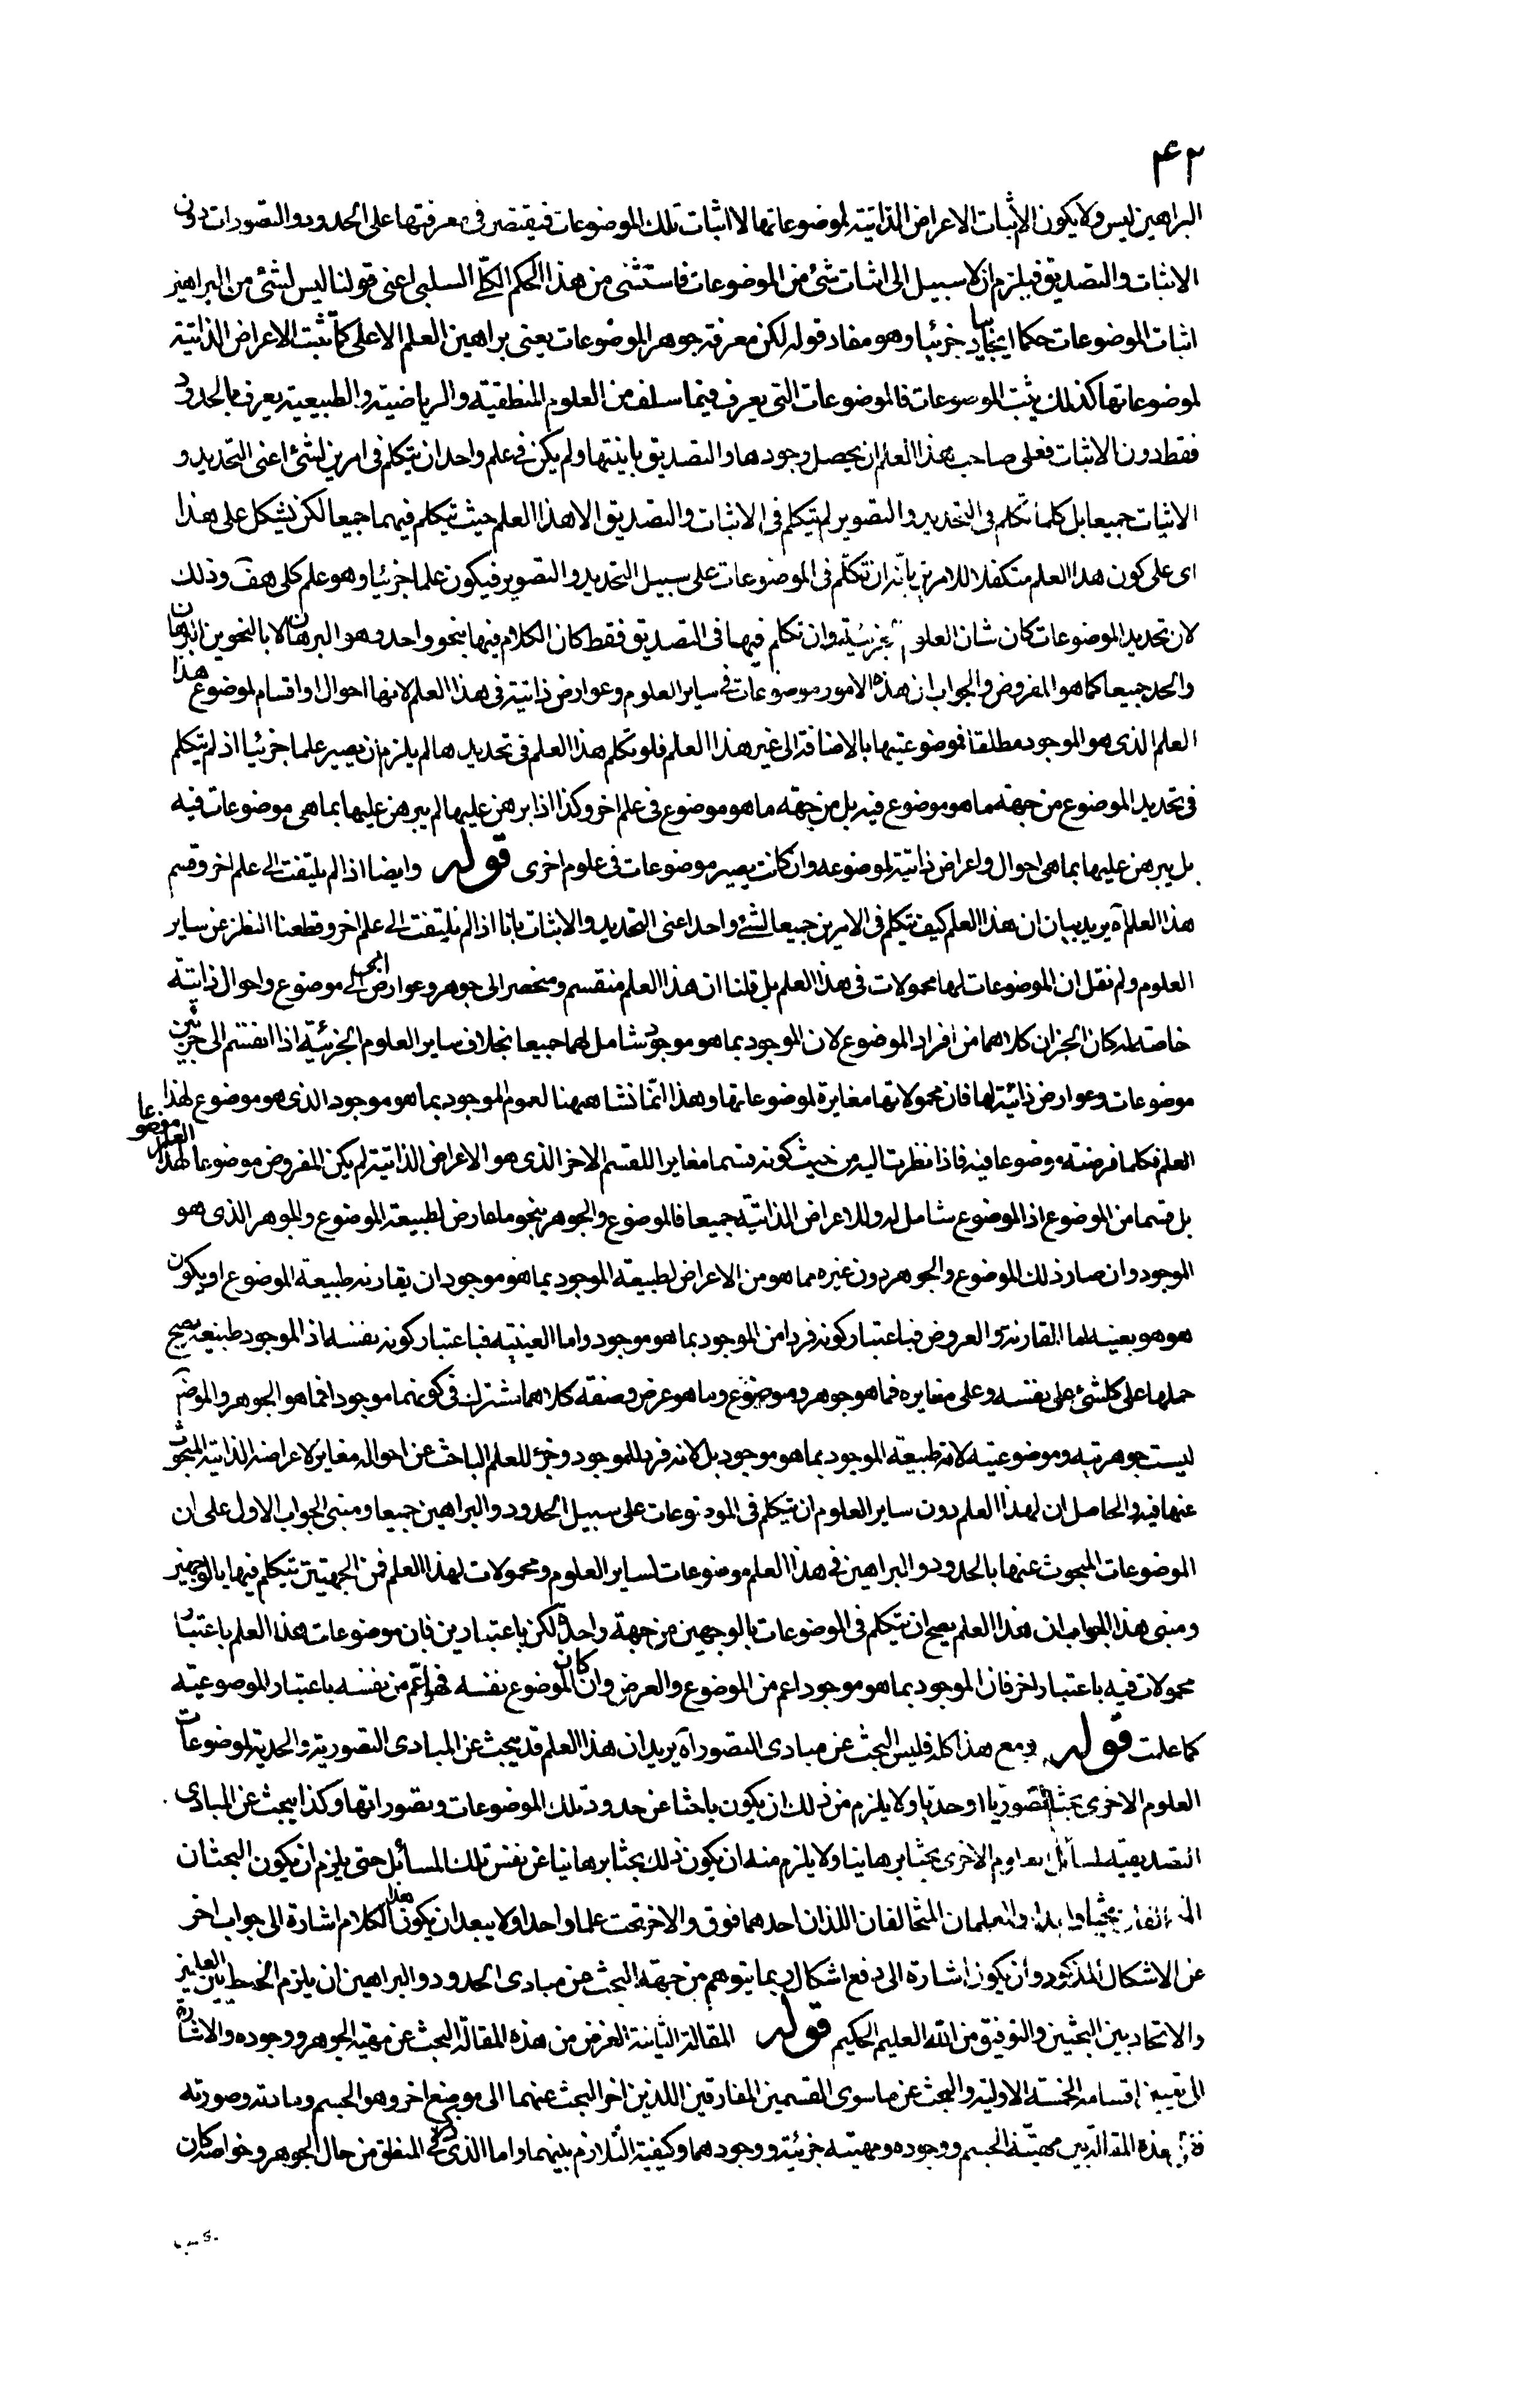 ٤٢
البراهين ليس ولا يكون الا اثبات الاعراض الذاتية لموضوعاتها لا اثبات تلك الموضوعات فيقتصر فى معرفتها على الحدود والتصورات دون
الاثبات والتصديق فيلزم ان لا سبيل الى اثبات شئ من الموضوعات فاستثنى من هذا الحكم الكلّى السلبى اعنى قولنا ليس لشئ من البراهين
اثبات الموضوعات حكما ايجابيا جزئيا وهو مفاد قوله لكن معرفة جوهر الموضوعات يعنى براهين العلم الاعلى كما تثبت الاعراض الذاتية
لموضوعاتها كذلك يثبت الموضوعات فالموضوعات التى يعرف فيما سلف من العلوم المنطقية والرياضية والطبيعية يعرف بالحدود
فقط دون الاثبات فعلى صاحب هذا العلم ان يحصل وجودها والتصديق بانيتها ولم يكن فى علم واحد ان يتكلم فى امرين لشئ اعنى التحديد و
الاثبات جميعا بل كلما تكلم فى التحديد والتصوير لم يتكلم فى الاثبات والتصديق الا هذا العلم حيث يتكلم فيهما جميعا لكن يشكل على هذا
اى على كون هذا العلم متكفلا للامرين بانّه ان تكلّم فى الموضوعات على سبيل التحديد والتصوير فيكون علما جزئيا وهو علم كلى هف وذلك
لان تحديد الموضوعات كان شان العلوم الجزئية وان تكلم فيها فى التصديق فقط كان الكلام فيها بنحو واحد وهو البرهان لا بالنحوين البرهان
والحد جميعا كما هو المفروض والجواب ان هذه الامور موضوعات فى ساير العلوم وعوارض ذاتية فى هذا العلم لانها احوال او اقسام لموضوع هذا
العلم الذى هو الموجود مطلقا فموضوعيتها بالاضافة الى غير هذا العلم فلو تكلم هذا العلم فى تحديدها لم يلزم ان يصير علما جزئيا اذ لم يتكلم
فى تحديد الموضوع من جهة ما هو موضوع فيه بل من جهة ما هو موضوع فى علم اخر وكذا اذا برهن عليها لم يبرهن عليها بما هى موضوعات فيه
بل يبرهن عليها بما هى احوال واعراض ذاتية لموضوعه وان كانت يصير موضوعات فى علوم اخرى قوله وايضا اذا لم يلتفت الى علم اخر وقسم
هذا العلم آه يريد بيان ان هذا العلم كيف يتكلم فى الامرين جميعا لشئ واحد اعنى التحديد والاثبات بانا اذا لم نلتفت الى علم اخر وقطعنا النظر عن ساير
العلوم ولم نقل ان الموضوعات لها محمولات فى هذا العلم بل قلنا ان هذا العلم منقسم ومنحصر الى جوهر وعوارض اى الى موضوع واحوال ذاتية
خاصة له كان الجزان كلاهما من افراد الموضوع لان الموجود بما هو موجود شامل لهما جميعا بخلاف ساير العلوم الجزئية اذا انقسم الى جزئين
موضوعات وعوارض ذاتية لها فان محمولاتها مغايرة لموضوعاتها وهذا انّما نشا ههنا لعموم الموجود بما هو موجود الذى هو موضوع لهذا
العلم فكلما فرضته موضوعا فيه فاذا نظرت اليه من حيث كونه قسما مغايرا للقسم الاخر الذى هو الاعراض الذاتية لم يكن المفروض موضوعا لهذا العلم موضوعا
بل قسما من الموضوع اذ الموضوع شامل له وللاعراض الذاتية جميعا فالموضوع والجوهر بنحو ما عارض لطبيعة الموضوع والجوهر الذى هو
الموجود وان صار ذلك الموضوع والجوهر دون غيره مما هو من الاعراض لطبيعة الموجود بما هو موجود ان يقارنه طبيعة الموضوع او يكون
هو هو بعينه اما المقارنة والعروض فباعتبار كونه فردا من الموجود بما هو موجود واما العينية فباعتبار كونه نفسه اذ الموجود طبيعة يصح
حملها على كل شئ على نفسه وعلى مغايره فما هو جوهر وموضوع وما هو عرض وصفة كلاهما تشترك فى كونهما موجودا فما هو الجوهر والموضوع
ليست جوهريته وموضوعيته لانه طبيعة الموجود بما هو موجود بل لانه فرد للموجود وجزء للعلم الباحث عن احواله مغاير لاعراضه الذاتية المبحوث
عنها فيه والحاصل ان لهذا العلم دون ساير العلوم ان يتكلم فى الموضوعات على سبيل الحدود والبراهين جميعا ومبنى الجواب الاول على ان
الموضوعات المبحوث عنها بالحدود والبراهين فى هذا العلم موضوعات لساير العلوم ومحمولات لهذا العلم فمن الجهتين يتكلم فيها بالوجهين
ومبنى هذا الجواب ان هذا العلم يصح ان يتكلم فى الموضوعات بالوجهين من جهة واحدة لكن باعتبارين فان موضوعات هذا العلم باعتبار
محمولات فيه باعتبار اخر فان الموجود بما هو موجود اعم من الموضوع والعرض وان كان الموضوع نفسه فهو اعمّ من نفسه باعتبار الموضوعية
كما علمت قوله ومع هذا كله فليس البحث عن مبادى التصور آه يريد ان هذا العلم قد يبحث عن المبادى التصورية والحدية لموضوعات
العلوم الاخرى بحثا تصوريا او حديا ولا يلزم من ذلك ان يكون باحثا عن حدود تلك الموضوعات وتصوراتها وكذا يبحث عن المبادى
التصديقية لمسائل العلوم الاخرى بحثا برهانيا ولا يلزم منه ان يكون ذلك بحثا برهانيا عن نفس تلك المسائل حتى يلزم ان يكون البحثان
المتخالفان بحثا واحدا والعلمان المتخالفان اللذان احدهما فوق والاخر تحت علما واحدا ولا يبعد ان يكون هذا الكلام اشارة الى جواب اخر
عن الاشكال المذكور وان يكون اشارة الى دفع اشكال ربما يتوهم من جهة البحث عن مبادى الحدود والبراهين ان يلزم الخلط بين العلمين
والاتحاد بين البحثين والتوفيق من الله العليم الحكيم قوله المقالة الثانية الغرض من هذه المقالة البحث عن مهية الجوهر ووجوده والاشارة
الى تعيين اقسامه الخمسة الاولية والبحث عن ما سوى القسمين المفارقين اللذين اخر البحث عنهما الى موضع اخر وهو الجسم ومادته وصورته
هذه المقالة يبين مهية الجسم ووجوده ومهية جزئية ووجودهما وكيفية التلازم بينهما واما الذى ذكر فى المنطق من حال الجوهر وخواصه كان